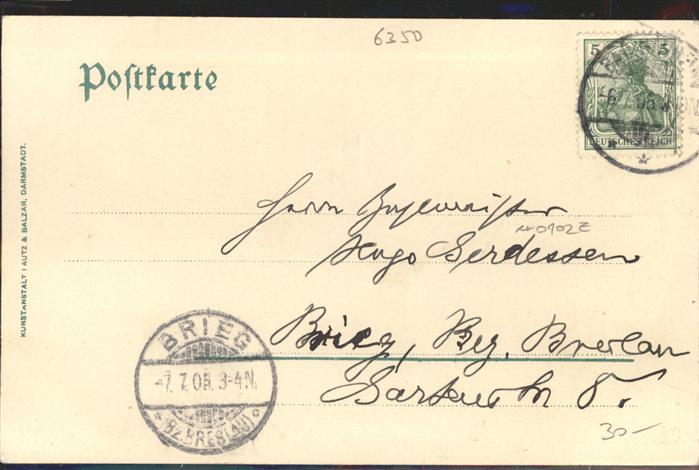 6350
Postkarte
5 5
-6.7.05.
DEUTSCHES REICH
KUNSTANSTALT LAUTZ & BALZAR, DARMSTADT.
Herrn
N 0102Z
Hugo Gerdessen
BRIEG
-7.7.05. 3-4N.
* (BZ. BRESLAU) *
Brieg, Bez. Breslau
Gartenstr 8.
30-